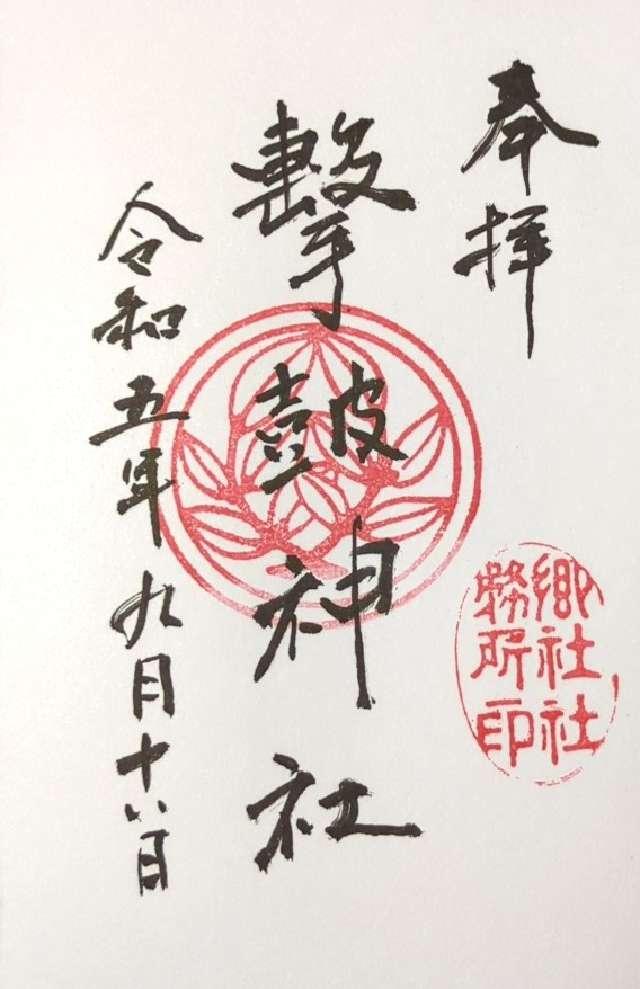 奉拝
撃鼓神社
令和五年九月十八日
郷社社
務所印